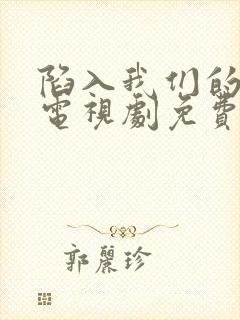 陷入我们的
電視劇免費
郭麗珍